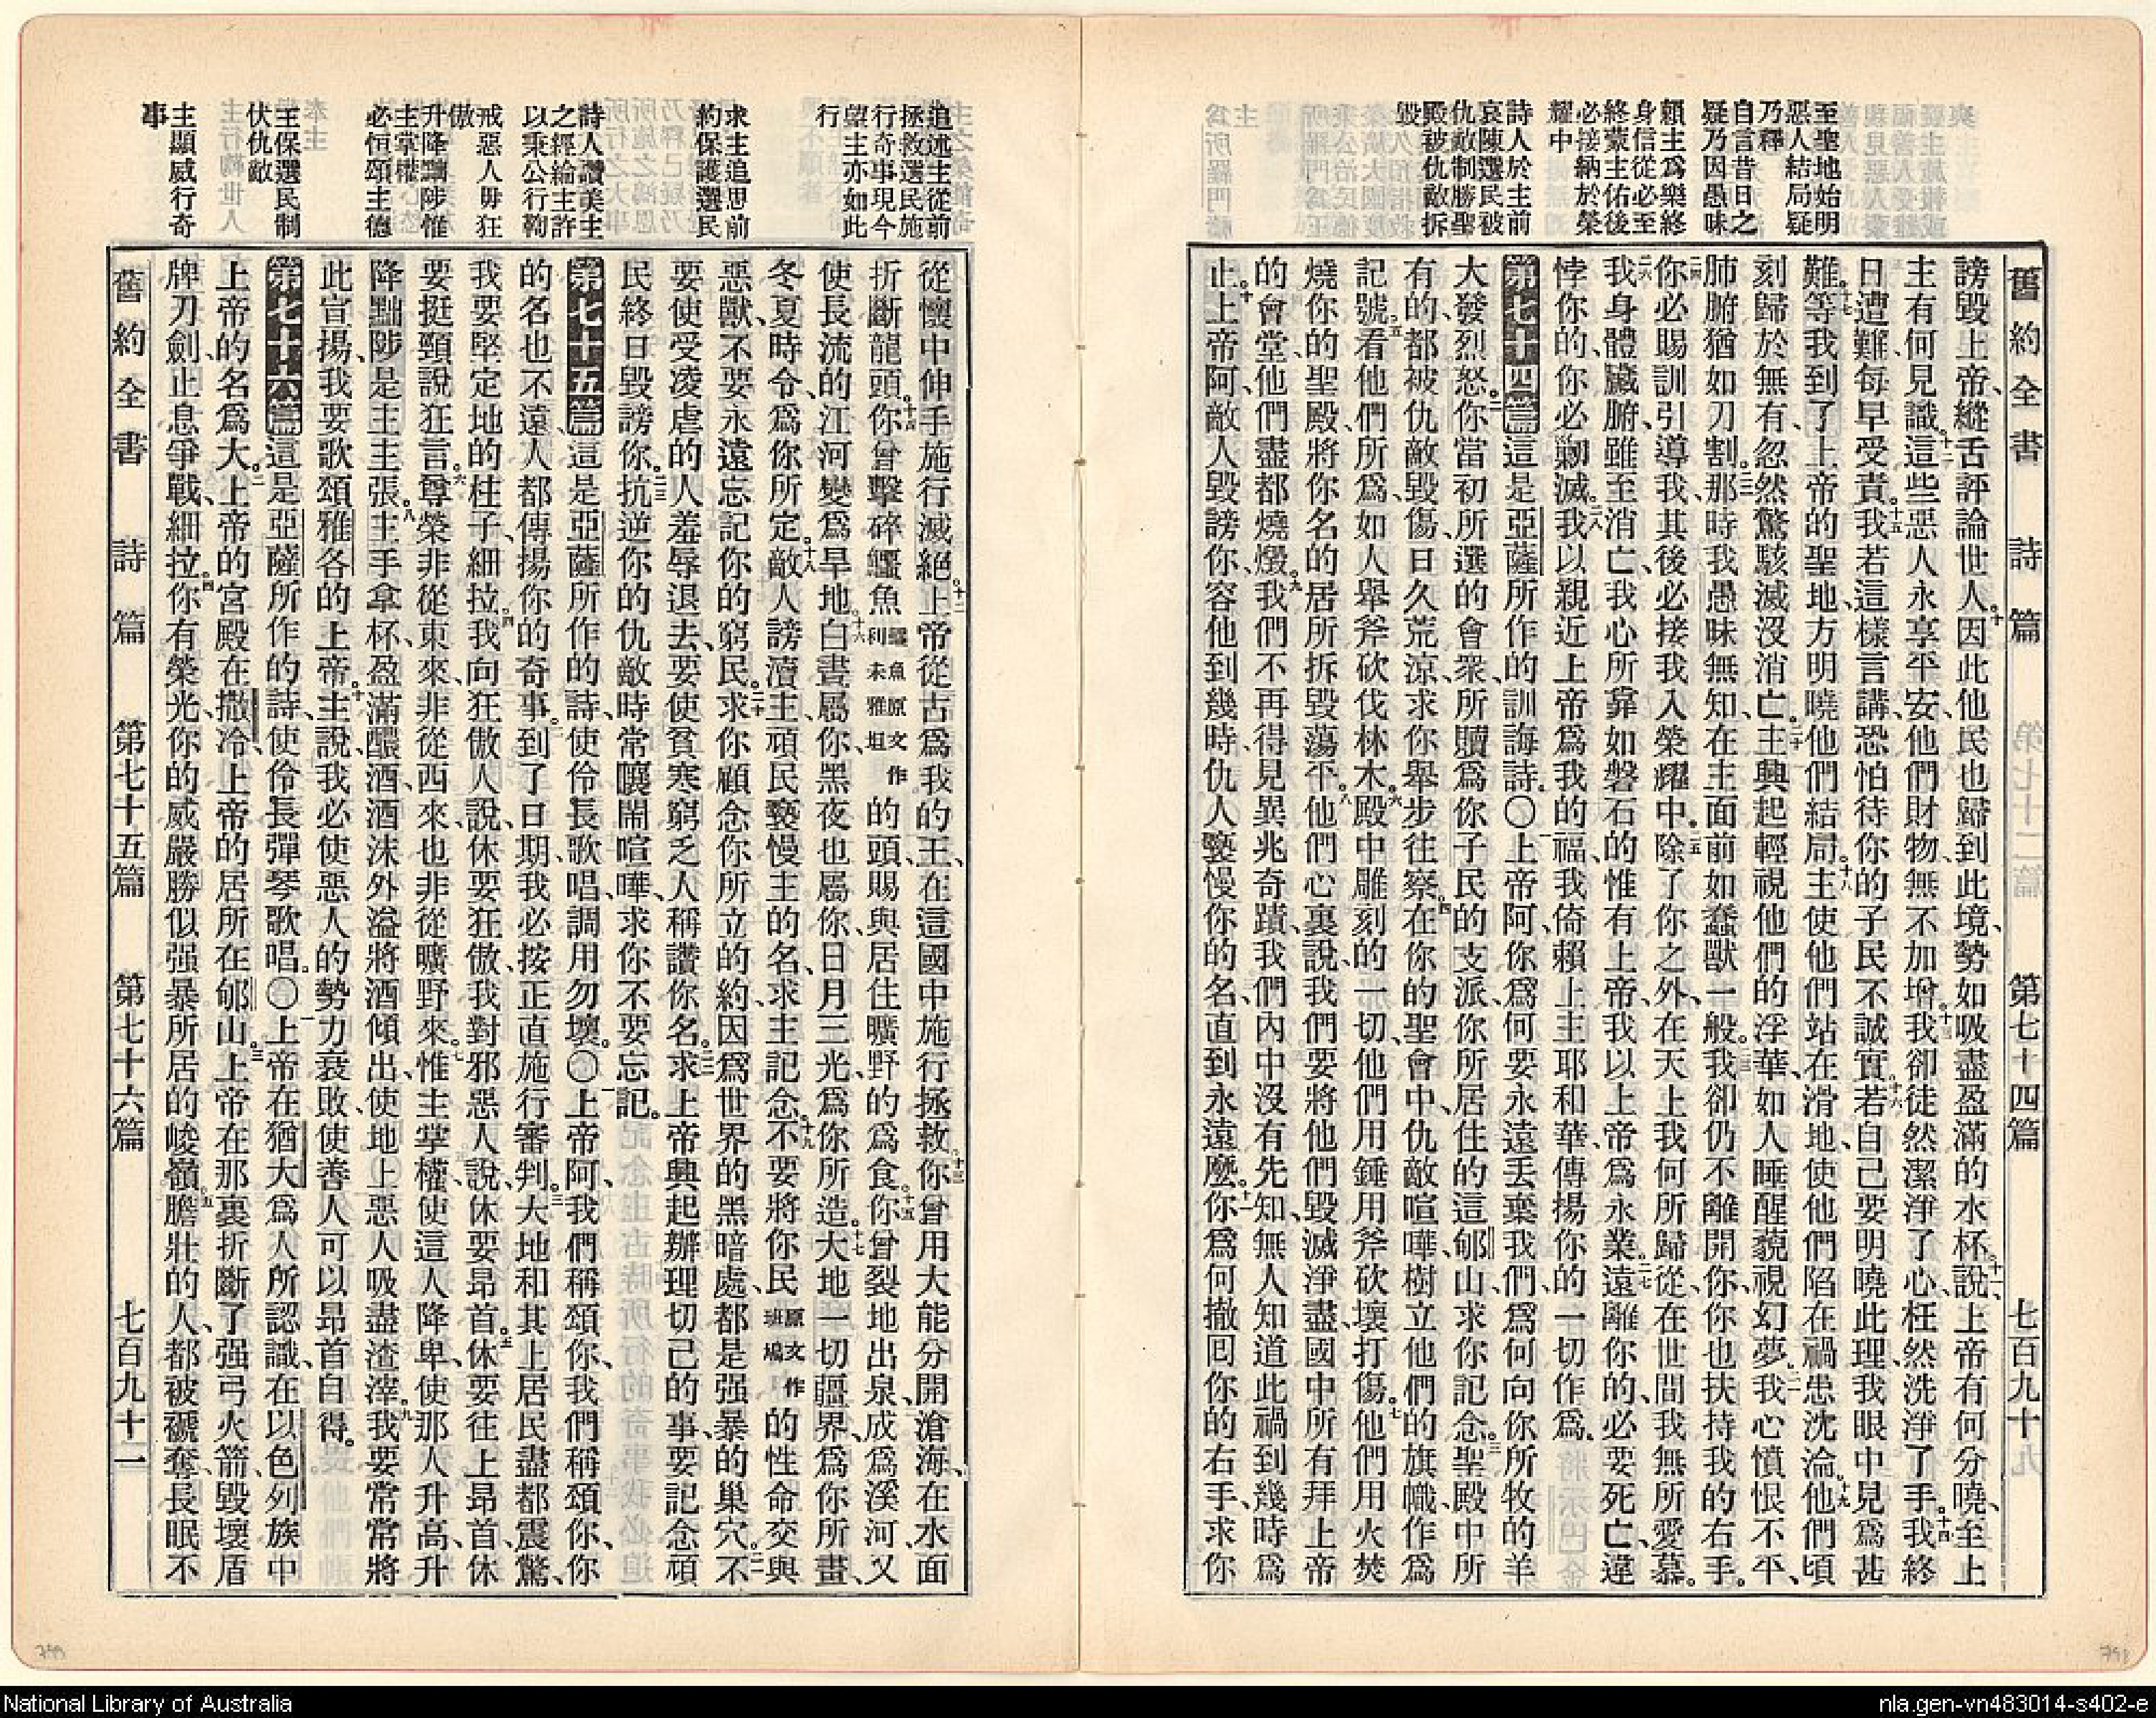 至聖地始明
惡人結局疑
乃釋
自言昔日之
疑乃因愚昧
賴主爲樂終
身信從必至
終蒙主佑後
必接納於榮
耀中
詩人於主前
哀陳選民被
仇敵制勝聖
殿被仇敵拆
毀
舊約全書 詩篇 第七十四篇 七百九十九
謗毀上帝、縱舌評論世人。因此他民也歸到此境、勢如吸盡盈滿的水杯。說、上帝有何分曉、至上
主有何見識。這些惡人永享平安、他們財物、無不加增。我卻徒然潔淨了心、枉然洗淨了手。我終
日遭難、每早受責。我若這樣言講、恐怕待你的子民不誠實。若自己要明曉此理、我眼中見爲甚
難。等我到了上帝的聖地、方明曉他們結局。主使他們站在滑地、使他們陷在禍患沈淪。他們頃
刻歸於無有、忽然驚駭滅沒消亡。主興起輕視他們的浮華、如人睡醒藐視幻夢。我心憤恨不平、
肺腑猶如刀割。那時我愚昧無知、在主面前如蠢獸一般。我卻仍不離開你、你也扶持我的右手。
你必賜訓引導我、其後必接我入榮耀中。除了你之外、在天上我何所歸從、在世間我無所愛慕。
我身體臟腑雖至消亡、我心所靠如磐石的惟有上帝、我以上帝爲永業。遠離你的、必要死亡、違
悖你的、你必勦滅。我以親近上帝爲我的福、我倚賴上主耶和華、傳揚你的一切作爲。
第七十四篇 這是亞薩所作的訓誨詩。〇上帝阿、你爲何要永遠丟棄我們、爲何向你所牧的羊
大發烈怒。你當初所選的會衆、所贖爲你子民的支派、你所居住的這郇山、求你記念。聖殿中所
有的、都被仇敵毀傷、日久荒涼、求你舉步往察。在你的聖會中、仇敵喧嘩、樹立他們的旗幟、作爲
記號。看他們所爲、如人舉斧砍伐林木。殿中雕刻的一切、他們用錘用斧砍壞打傷。他們用火焚
燒你的聖殿、將你名的居所拆毀蕩平。他們心裏說、我們要將他們毀滅淨盡、國中所有拜上帝
的會堂、他們盡都燒燬。我們不再得見異兆奇蹟、我們內中沒有先知、無人知道此禍到幾時爲
止。上帝阿、敵人毀謗你、容他到幾時、仇人褻慢你的名、直到永遠麽。你爲何撤回你的右手、求你
追述主從前
拯救選民施
行奇事現今
望主亦如此
行
求主追思前
約保護選民
詩人讚美主
之經綸主許
以秉公行鞫
戒惡人毋狂
傲
升降黜陟惟
主掌權
必恒頌主德
主保選民制
伏仇敵
主顯威行奇
事
從懷中伸手施行滅絕。上帝從古爲我的王、在這國中施行拯救。你曾用大能分開滄海、在水面
折斷龍頭。你曾擊碎鱷魚鱷魚原文作利未雅坦的頭、賜與居住曠野的爲食。你曾裂地出泉、成爲溪河、又
使長流的江河變爲旱地。白晝屬你、黑夜也屬你、日月三光、爲你所造。大地一切疆界、爲你所畫、
冬夏時令、爲你所定。敵人謗瀆主、頑民褻慢主的名、求主記念。不要將你民原文作班鳩的性命交與
惡獸、不要永遠忘記你的窮民。求你顧念你所立的約、因爲世界的黑暗處、都是强暴的巢穴。不
要使受凌虐的人羞辱退去、要使貧寒窮乏人稱讚你名。求上帝興起、辦理切己的事、要記念頑
民終日毀謗你。抗逆你的仇敵、時常嚷鬧喧嘩、求你不要忘記。
第七十五篇 這是亞薩所作的詩、使伶長歌唱、調用勿壞。〇上帝阿、我們稱頌你、我們稱頌你、你
的名也不遠、人都傳揚你的奇事。到了日期、我必按正直施行審判。大地和其上居民盡都震驚、
我要堅定地的柱子。細拉。我向狂傲人說、休要狂傲、我對邪惡人說、休要昂首。休要往上昂首、休
要挺頸說狂言。尊榮非從東來、非從西來、也非從曠野來。惟主掌權、使這人降卑、使那人升高、升
降黜陟、是主主張。主手拿杯、盈滿醲酒、酒沫外溢、將酒傾出、使地上惡人吸盡渣滓。我要常常將
此宣揚、我要歌頌雅各的上帝。主說、我必使惡人的勢力衰敗、使善人可以昂首自得。
第七十六篇 這是亞薩所作的詩、使伶長彈琴歌唱。〇上帝在猶大爲人所認識、在以色列族中
上帝的名爲大。上帝的宮殿在撒冷、上帝的居所在郇山。上帝在那裏折斷了强弓火箭、毀壞盾
牌刀劍、止息爭戰。細拉。你有榮光、你的威嚴勝似强暴所居的峻嶺。膽壯的人、都被褫奪、長眠不
舊約全書 詩篇 第七十五篇 第七十六篇 七百九十一
National Library of Australia
nla.gen-vn483014-s402-e